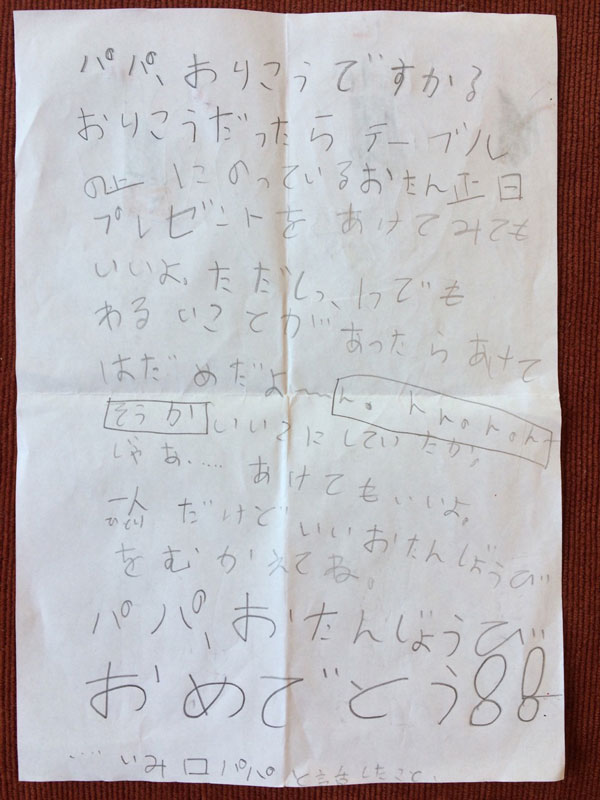 パパ、おりこうですかる
おりこうだったら テーブル
の上にのっているおたん正日
プレゼントを あけてみても
いいよ。ただしっ、1つでも
わるいことが あったら あけて
はだめだよ〜〜ん。んん。ん。ん
そうか いいこにしていたか。
じゃあ…… あけてもいいよ。
一人 ひとり だけど いいおたんじょうび
をむかえてね。
パパ、おたんじょうび
おめでとう!!
……いみ口パパと